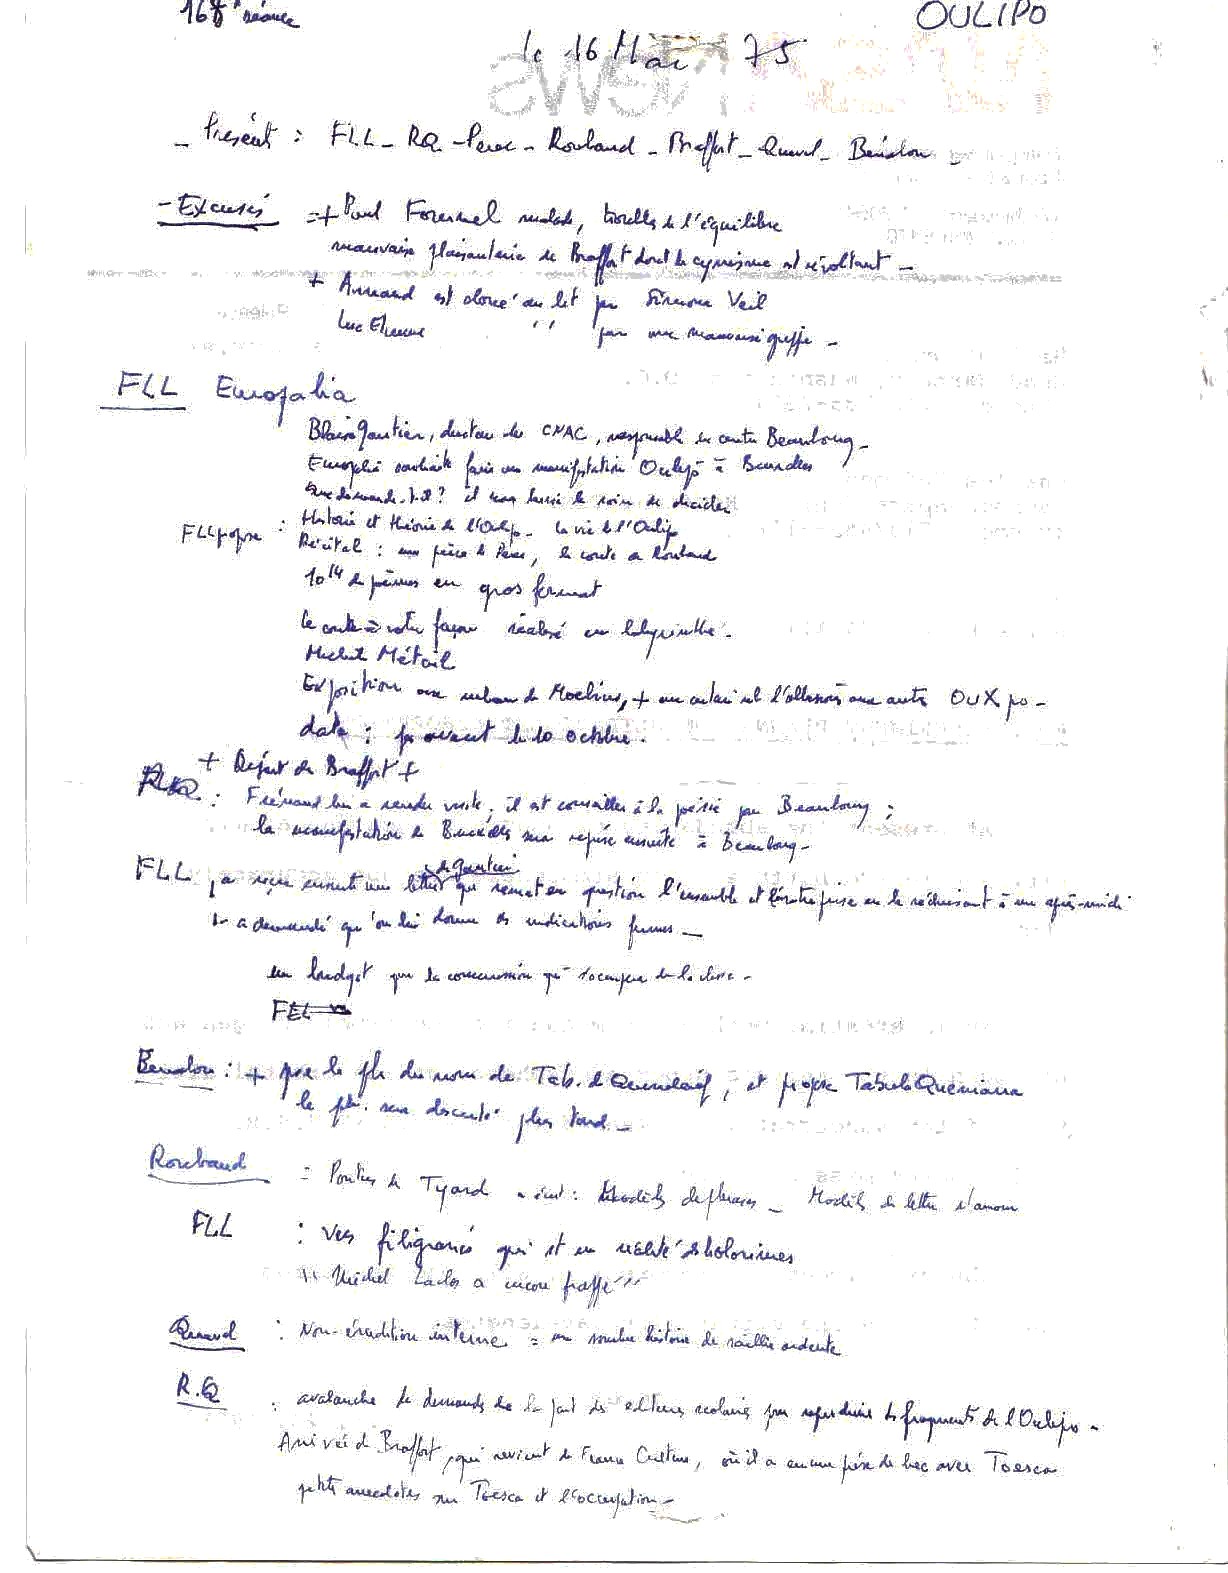 séance
OULIPO
le 16 Mai 75
- Présents : FLL - RQ - Perec - Roubaud - Braffort - Queval - Bénabou -
- Excusés = + Paul Fournel malade, troubles de l'équilibre
mauvaise plaisanterie de Braffort dont le cynisme est révoltant -
+ Arnaud est cloué au lit par Simone Veil
Luc Etienne " par une mauvaise grippe -
FLL Europalia
Blaise Gautier, directeur du CNAC, responsable du centre Beaubourg -
Europalia souhaite faire une manifestation Oulipo à Bruxelles
Que demande-t-il ? il nous laisse le soin de décider
FLL propose : Histoire et théorie de l'Oulipo - la vie de l'Oulipo
Récital : une pièce de Perec, le conte de Roubaud
10¹⁴ de poèmes en gros format
Le conte à votre façon réalisé en labyrinthe -
Michèle Métail
Exposition aux rubans de Moebius, + un allusions aux autres OUXpo -
date : pas avant le 10 octobre.
+ Départ de Braffort +
RQ : Frénaud lui a rendu visite, il est conseiller à la poésie pour Beaubourg ;
la manifestation de Bruxelles sera reprise ensuite à Beaubourg -
FLL , a reçu ensuite une lettre de Gautier qui remet en question l'ensemble et l'entreprise en la réduisant à un après-midi
a demandé qu'on lui donne des indications fermes -
un budget pour la commission qui s'occupera de la chose -
FLL
Bénabou : + pose le pb du nom de Tab. de Queneleieff, et propose Tabula Queniana
le pb. sera discuté plus tard -
Roubaud = Pontus de Tyard a écrit : Modèles de phrases - Modèles de lettre d'amour
FLL : Vers filigranés qui est en réalité holorimes
"Michel Laclos a encore frappé"
Queval : Non-érudition interne = une sombre histoire de saillie ardente
R.Q : avalanche de demandes de la part des éditeurs scolaires pour reproduire des fragments de l'Oulipo -
Arrivée de Braffort, qui revient de France Culture, où il a eu une prise de bec avec Toesca
petites anecdotes sur Toesca et l'occupation -